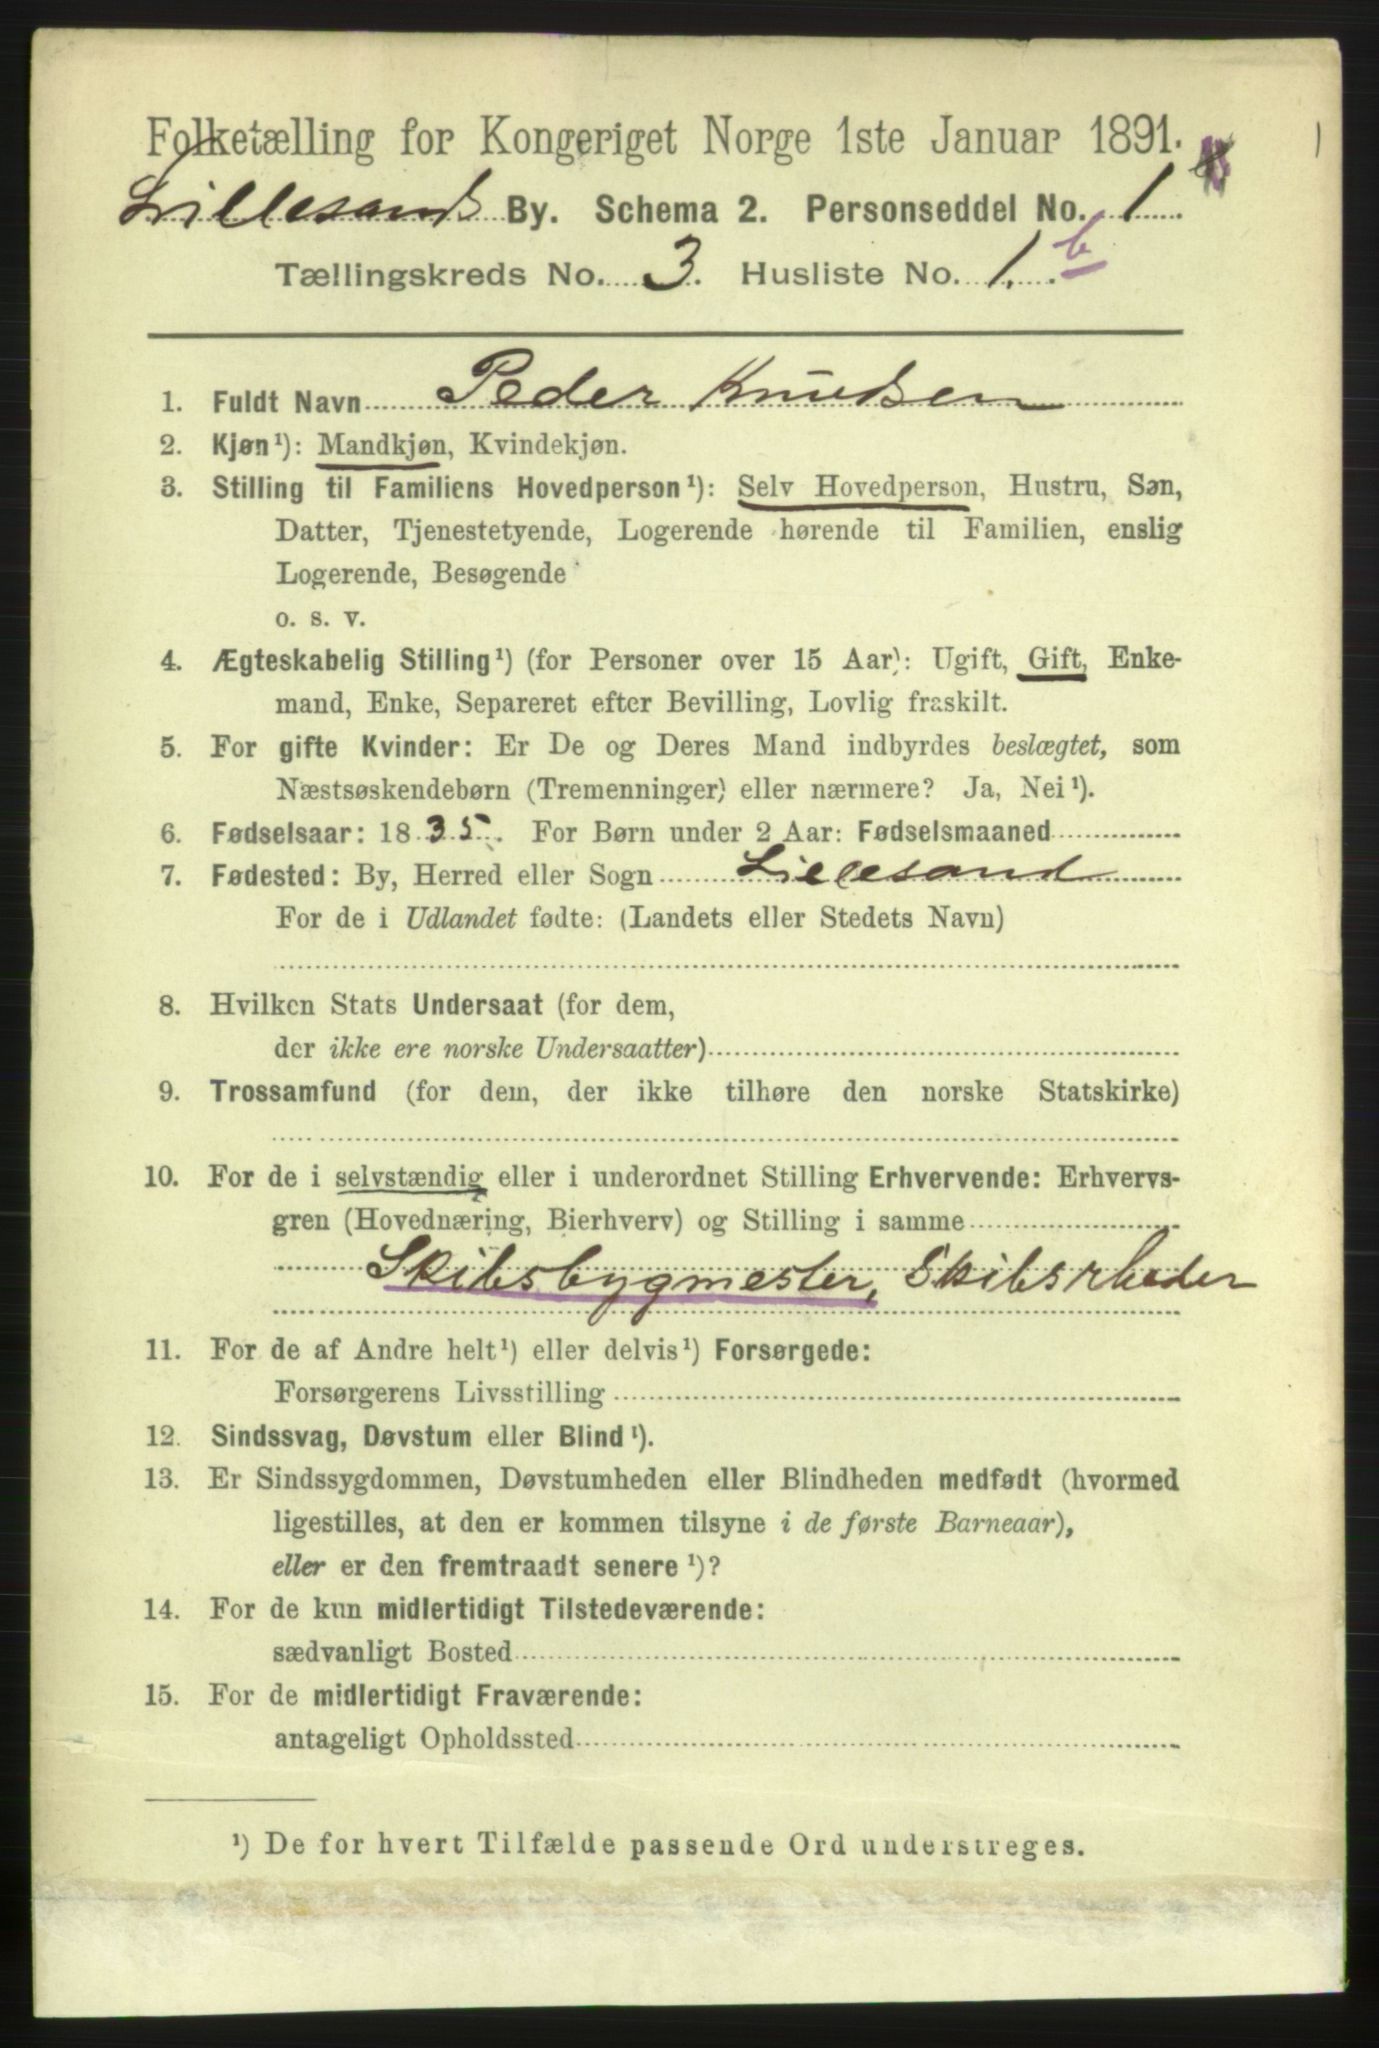 Folketælling for Kongeriget Norge 1ste Januar 1891.
Lillesand By. Schema 2. Personseddel No. 1
Tællingskreds No. 3. Husliste No. 1. b
1. Fuldt Navn Peder Knudsen
2. Kjøn¹): Mandkjøn, Kvindekjøn.
3. Stilling til Familiens Hovedperson¹): Selv Hovedperson, Hustru, Søn,
Datter, Tjenestetyende, Logerende hørende til Familien, enslig
Logerende, Besøgende
o. s. v.
4. Ægteskabelig Stilling¹) (for Personer over 15 Aar): Ugift, Gift, Enke-
mand, Enke, Separeret efter Bevilling, Lovlig fraskilt.
5. For gifte Kvinder: Er De og Deres Mand indbyrdes beslægtet, som
Næstsøskendebørn (Tremenninger) eller nærmere? Ja, Nei¹).
6. Fødselsaar: 1835. For Børn under 2 Aar: Fødselsmaaned
7. Fødested: By, Herred eller Sogn Lillesand
For de i Udlandet fødte: (Landets eller Stedets Navn)
8. Hvilken Stats Undersaat (for dem,
der ikke ere norske Undersaatter)
9. Trossamfund (for dem, der ikke tilhøre den norske Statskirke)
10. For de i selvstændig eller i underordnet Stilling Erhvervende: Erhvervs-
gren (Hovednæring, Bierhverv) og Stilling i samme
Skibsbygmester, Skibsrheder
11. For de af Andre helt¹) eller delvis¹) Forsørgede:
Forsørgerens Livsstilling
12. Sindssvag, Døvstum eller Blind¹).
13. Er Sindssygdommen, Døvstumheden eller Blindheden medfødt (hvormed
ligestilles, at den er kommen tilsyne i de første Barneaar),
eller er den fremtraadt senere¹)?
14. For de kun midlertidigt Tilstedeværende:
sædvanligt Bosted
15. For de midlertidigt Fraværende:
antageligt Opholdssted
¹) De for hvert Tilfælde passende Ord understreges.